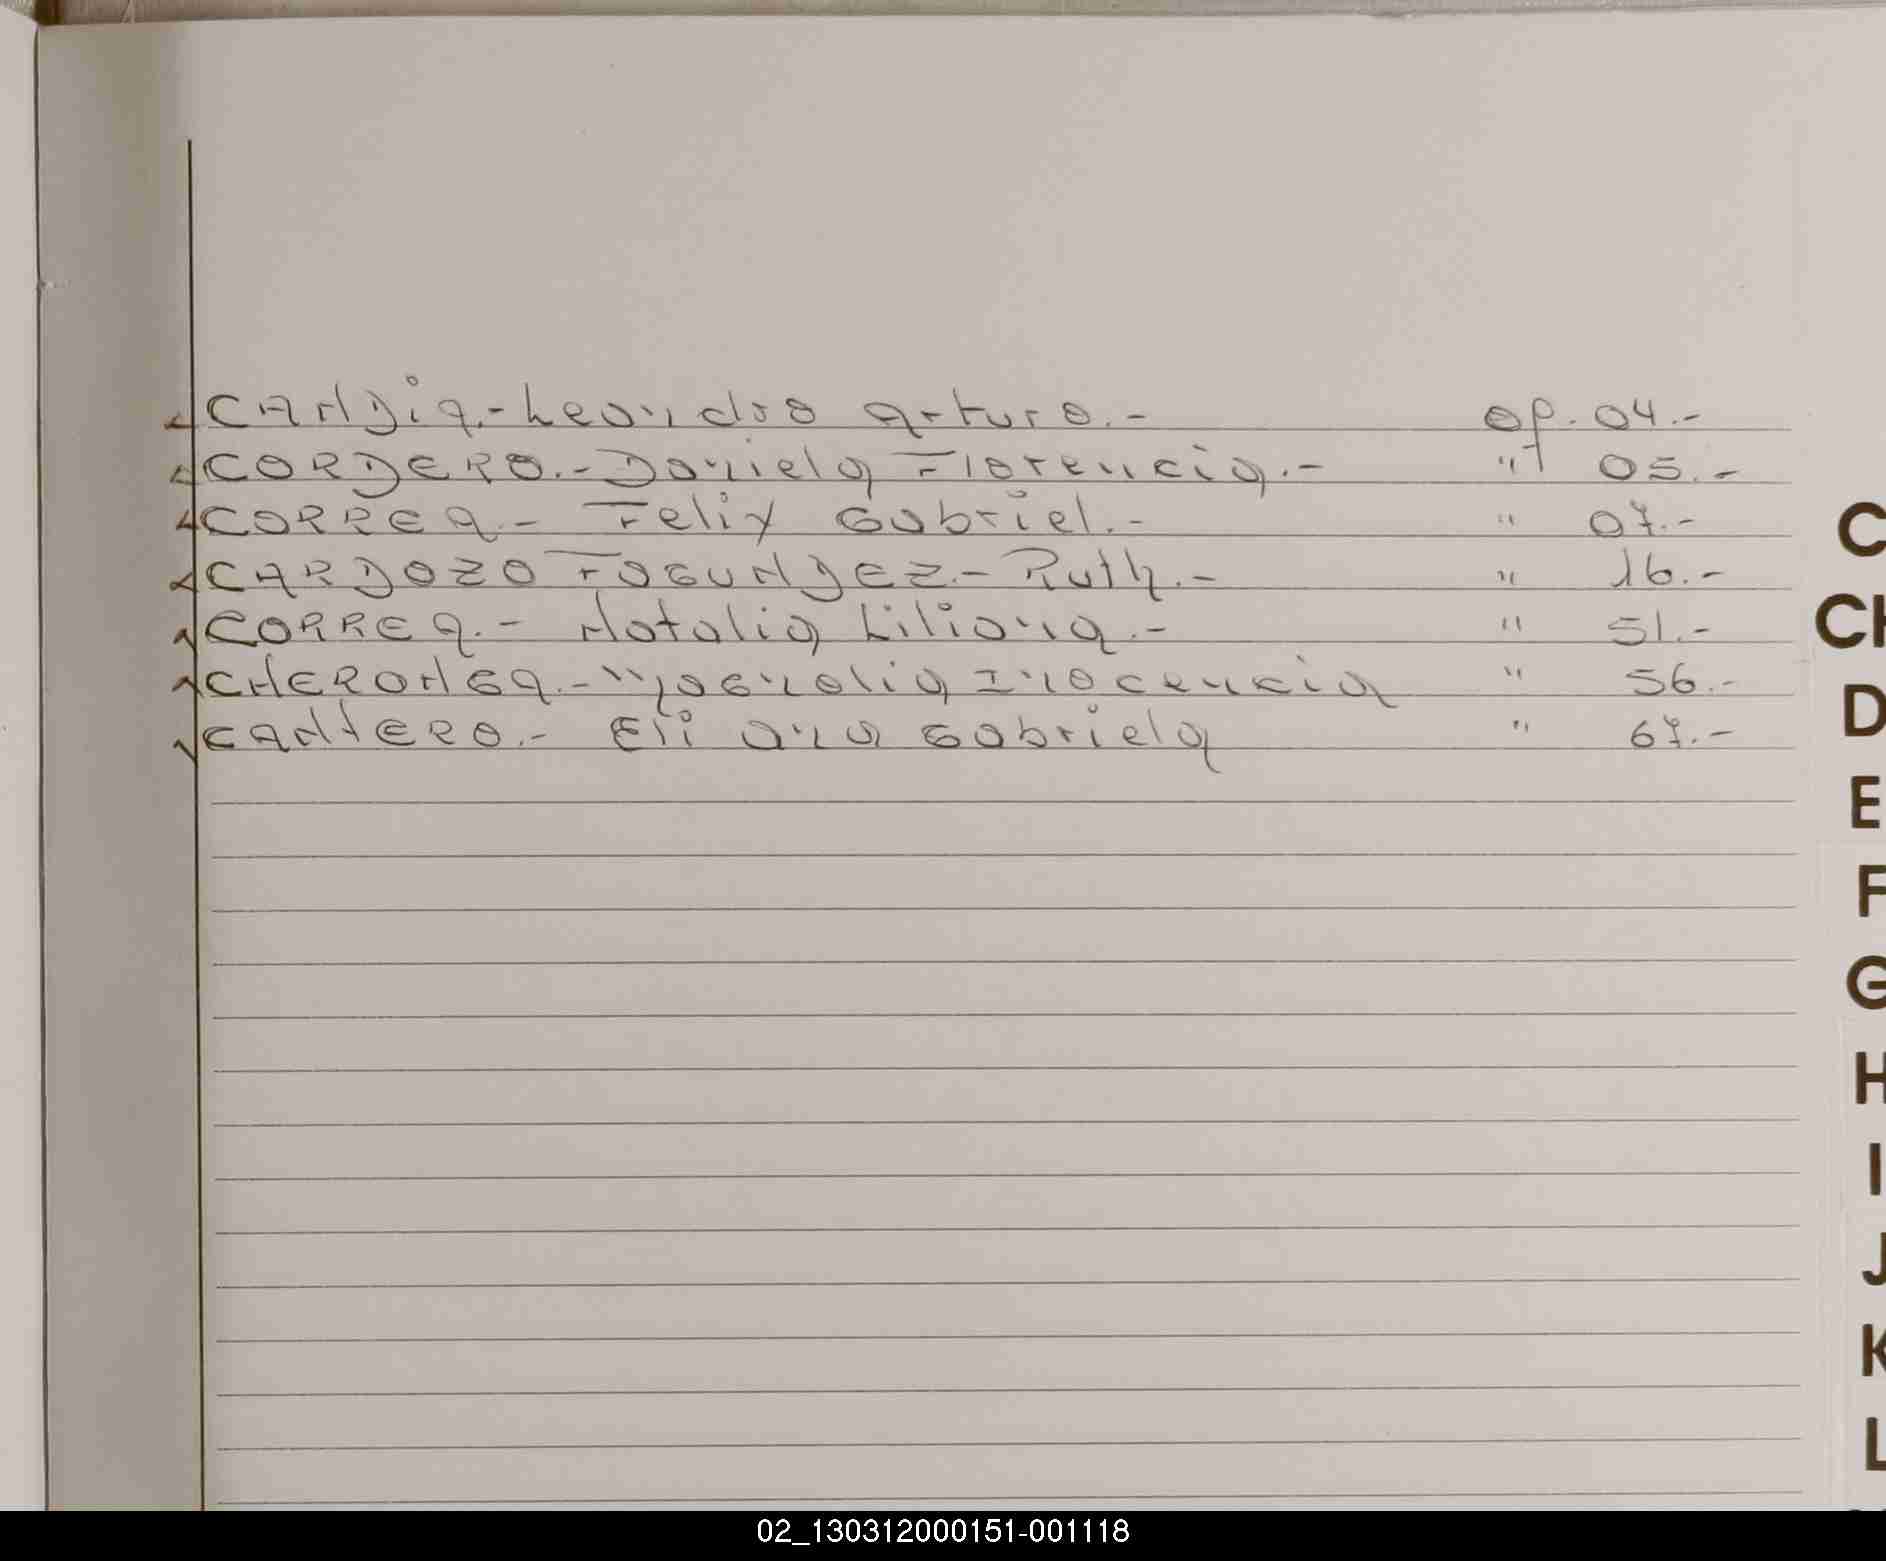 CANDIA.- Leandro Arturo.- Op. 04.-
CORDERO.- Daniela Florencia.- " 05.-
CORREA.- Felix Gabriel.- " 07.-
CARDOZO FAGUNDEZ.- Ruth.- " 16.-
CORREA.- Natalia Liliana.- " 51.-
CHERONGA.- Magnolia Inocencia " 56.-
CANTERO.- Eli Ana Gabriela " 67.-
C
CH
D
E
F
G
H
I
J
K
L
02_130312000151-001118